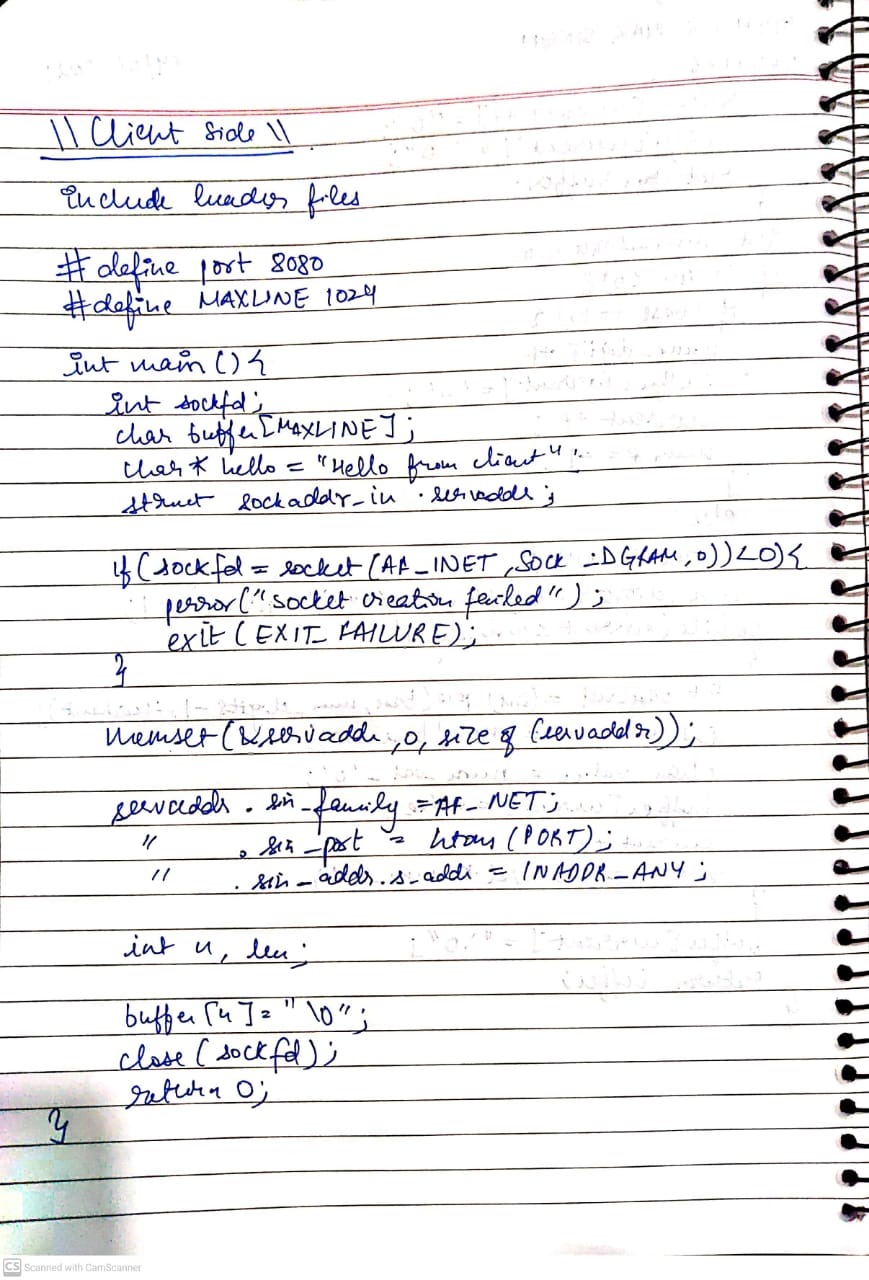 \\ Client Side \\
include header files
# define port 8080
# define MAXLINE 1024
int main () {
int sockfd;
char buffer [MAXLINE];
char * hello = "Hello from client";
struct sockaddr_in . servaddr;
if (sockfd = socket (AF_INET, SOCK_DGRAM, 0)) < 0) {
perror ("socket creation failed");
exit (EXIT_FAILURE);
}
memset (&servaddr, 0, size of (servaddr));
servaddr . sin_family = AF_NET;
" . sin_port = htons (PORT);
" . sin_addr. s_addr = INADDR_ANY;
int n, len;
buffer [n] = "\0";
close (sockfd);
return 0;
}
CS Scanned with CamScanner